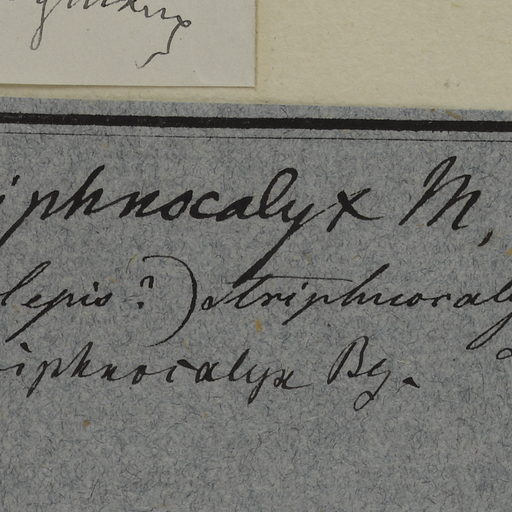 iphnocalyx M,
lepis?) striphnocaly
iphnocalyx Bg.